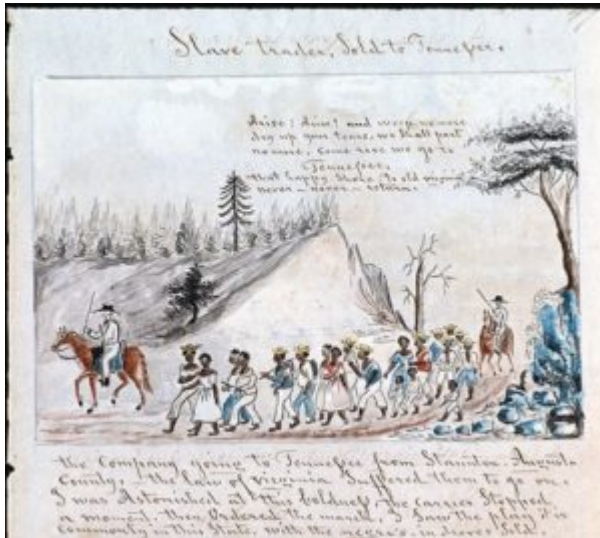 Slave trader, Sold to Tennessee,
Arise! Arise! and weep no more
dry up your tears, we shall part
no more, Come rose we go to
Tennessee,
that happy Shore, to old virginia
never - never - return.
the Company going to Tennessee from Staunton, Augusta
County, the law of virginia Suffered them to go on.
I was Astonished at this boldness, the carrier Stopped
a moment, then Ordered the march, I Saw the play it is
commonly in this State, with the negro's in droves Sold.